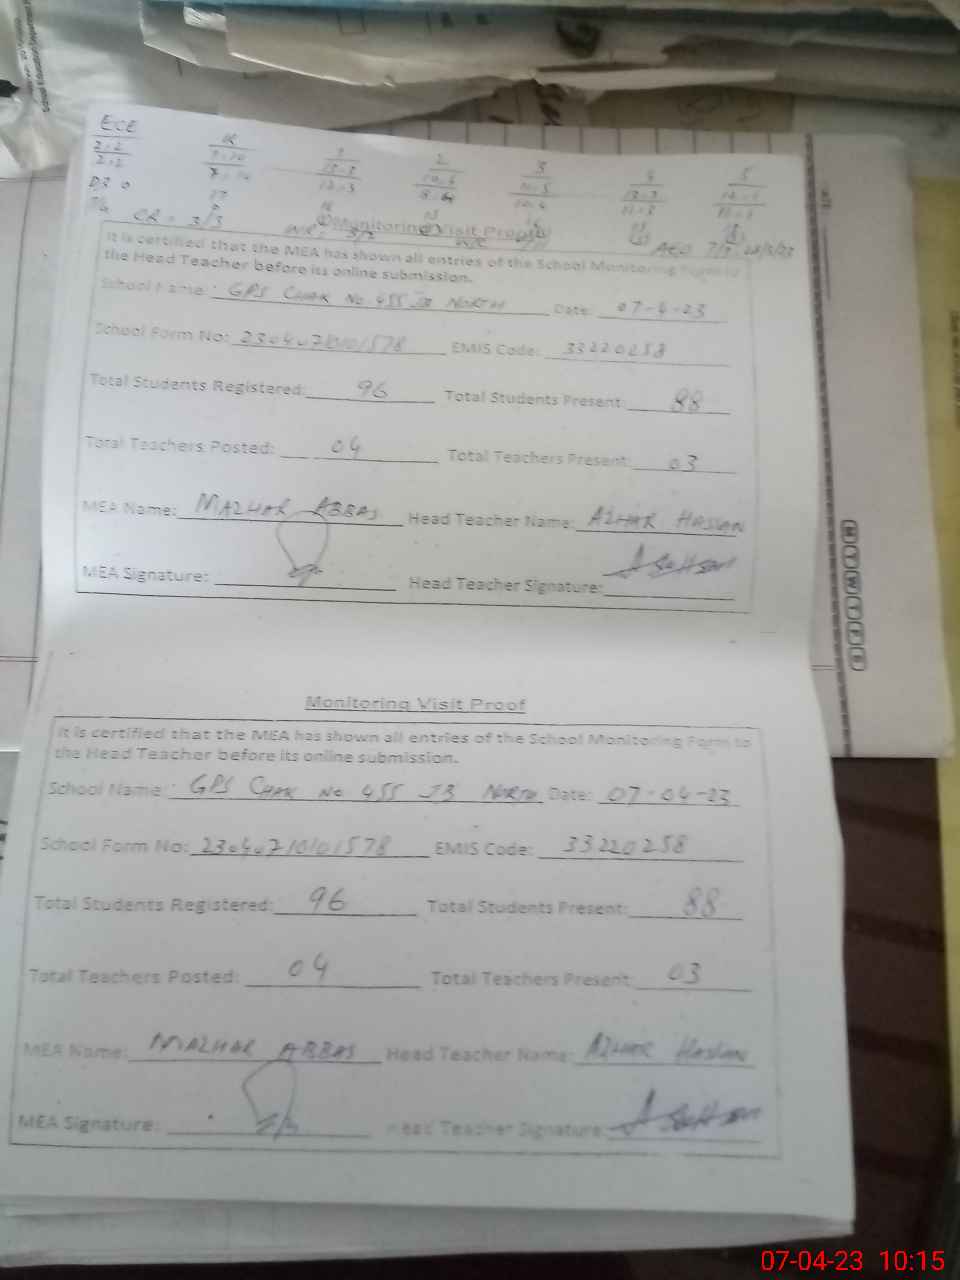 ECE K 1 2 3 4 5
CR = 3/3 AEO
Monitoring Visit Proof
It is certified that the MEA has shown all entries of the School Monitoring Form to
the Head Teacher before its online submission.
School Name: GPS CHAK No 455 JB NORTH Date: 07-4-23
School Form No: EMIS Code: 33220258
Total Students Registered: 96 Total Students Present: 88
Total Teachers Posted: 04 Total Teachers Present: 03
MEA Name: MAZHAR ABBAS Head Teacher Name: AZHAR HASSAN
MEA Signature: Head Teacher Signature:
Monitoring Visit Proof
It is certified that the MEA has shown all entries of the School Monitoring Form to
the Head Teacher before its online submission.
School Name: GPS CHAK No 455 JB NORTH Date: 07-04-23
School Form No: 23040710101578 EMIS Code: 33220258
Total Students Registered: 96 Total Students Present: 88
Total Teachers Posted: 04 Total Teachers Present: 03
MEA Name: MAZHAR ABBAS Head Teacher Name: AZHAR HASSAN
MEA Signature: Head Teacher Signature:
07-04-23 10:15